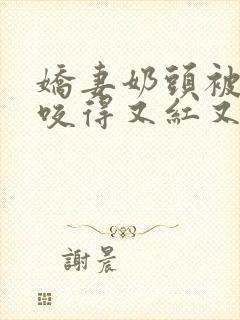 嬌妻奶頭被
咬得又紅又
謝晨